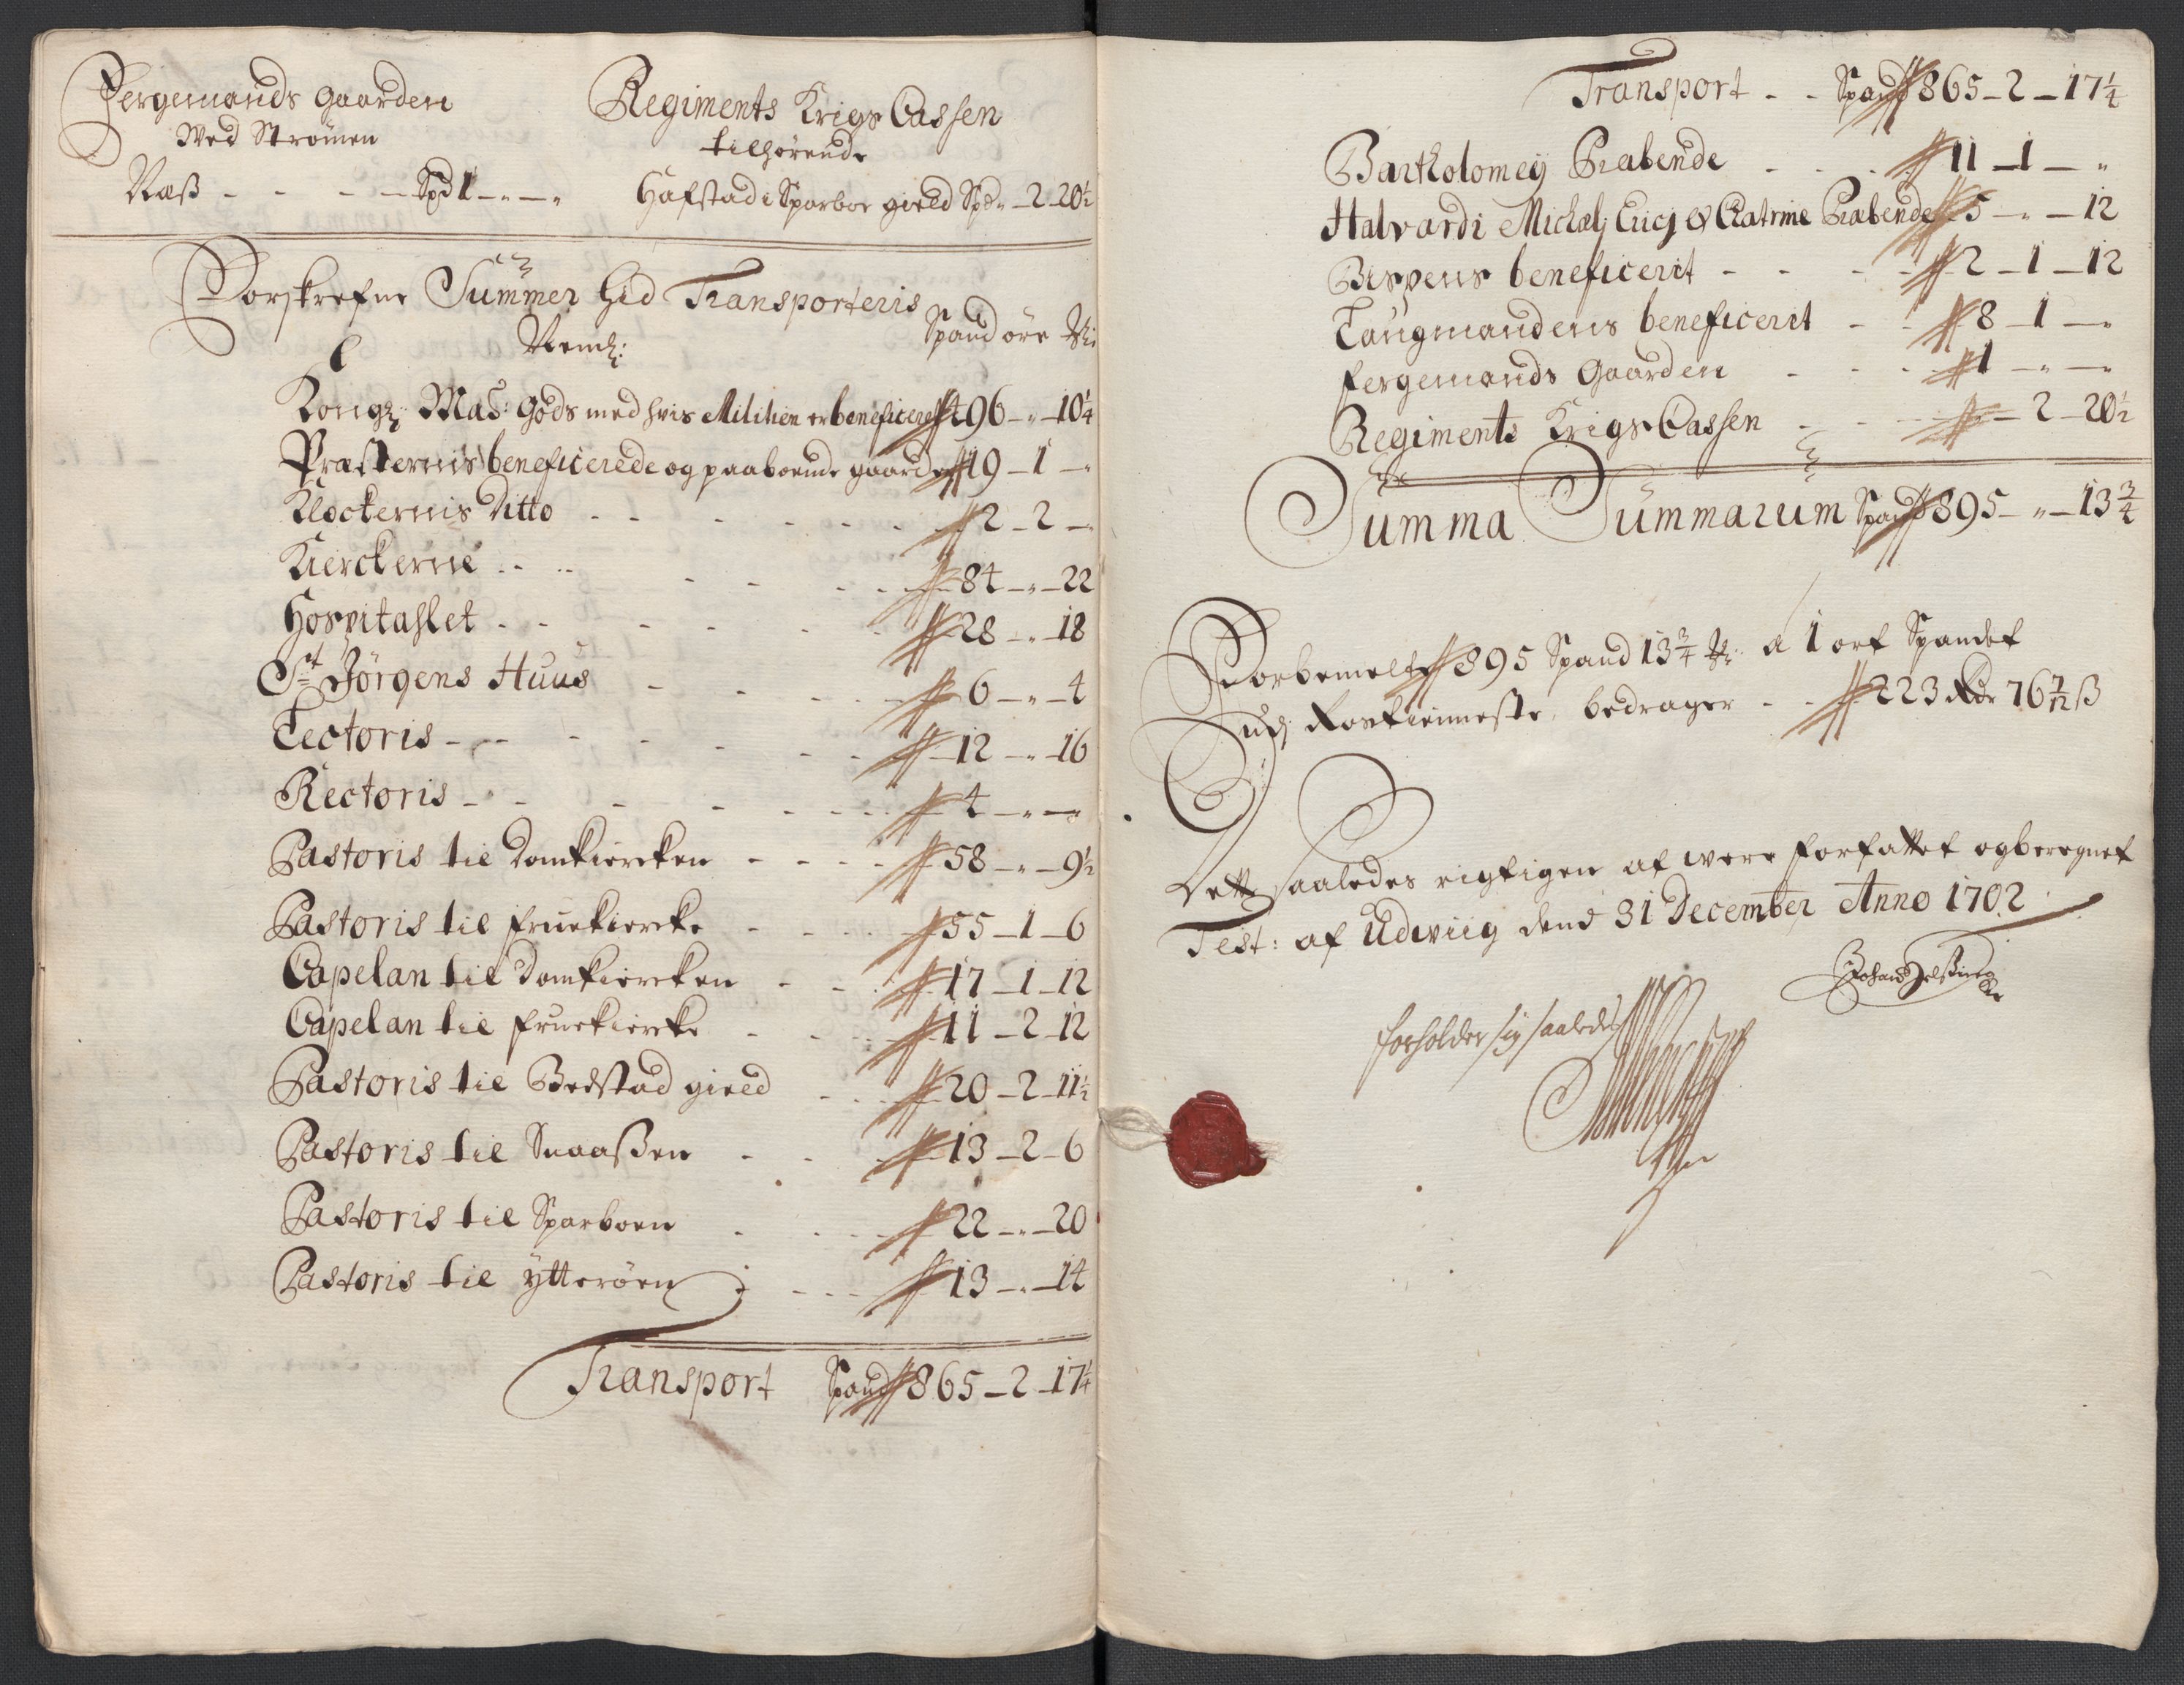 Fergemands Gaarden
Wed Strømen
Næss - - - Spd 1 - " - "
Regiments Krigs Cassen
tilhørende
Hafstad i Sparboe gield Spd " - 2 - 20½
Forskrefne Summer hid Transporteris
Nemb: Spand øre Mk:
Kongl: May: Gods med hvis Militien er beneficeret 496 - " - 10¼
Præsternis beneficerede og paaboende gaarder 19 - 1 - "
Klockernis Ditto - - - 2 - 2 - "
Kierckerne - - - 84 - " - 22
Hospitahlet - - - 28 - " - 18
St Jörgens Huus - - - 6 - " - 4
Lectoris - - - 12 - " - 16
Rectoris - - - 4 - " - "
Pastoris til Domkiercken - - - 58 - " - 9½
Pastoris til fruekiercke - - - 55 - 1 - 6
Capelan til Domkiercken - - - 17 - 1 - 12
Capelan til fruekiercke - - - 11 - 2 - 12
Pastoris til Bedstad gield - - - 20 - 2 - 11½
Pastoris til Snaaßen - - - 13 - 2 - 6
Pastoris til Sparboen - - - 22 - " - 20
Pastoris til ytterøen - - - 13 - " - 14
Transport Spand 865 - 2 - 17¼
Transport - - Spand 865 - 2 - 17¼
Bartholomey Præbende - - - 11 - 1 - "
Halvardi Michæli Ericj & Chatrine Præbende 5 - " - 12
Bispens beneficerit - - - 2 - 1 - 12
Laugmandens beneficerit - - 8 - 1 - "
fergemands Gaarden - - - 1 - " - "
Regiments Krigs Cassen - - - " - 2 - 20½
Summa Summarum Spand 895 - " - 13¾
Forbemelte 895 Spand 13¾ Mk: a 1 ort Spandet
udj Rostienneste, bedrager - - 223 Rdr 76 7/12 ß
Dett saaledes rigtigen at were forfattet og beregnet
Test: af Udwiig dend 31 December Anno 1702
forholder sig saaledes